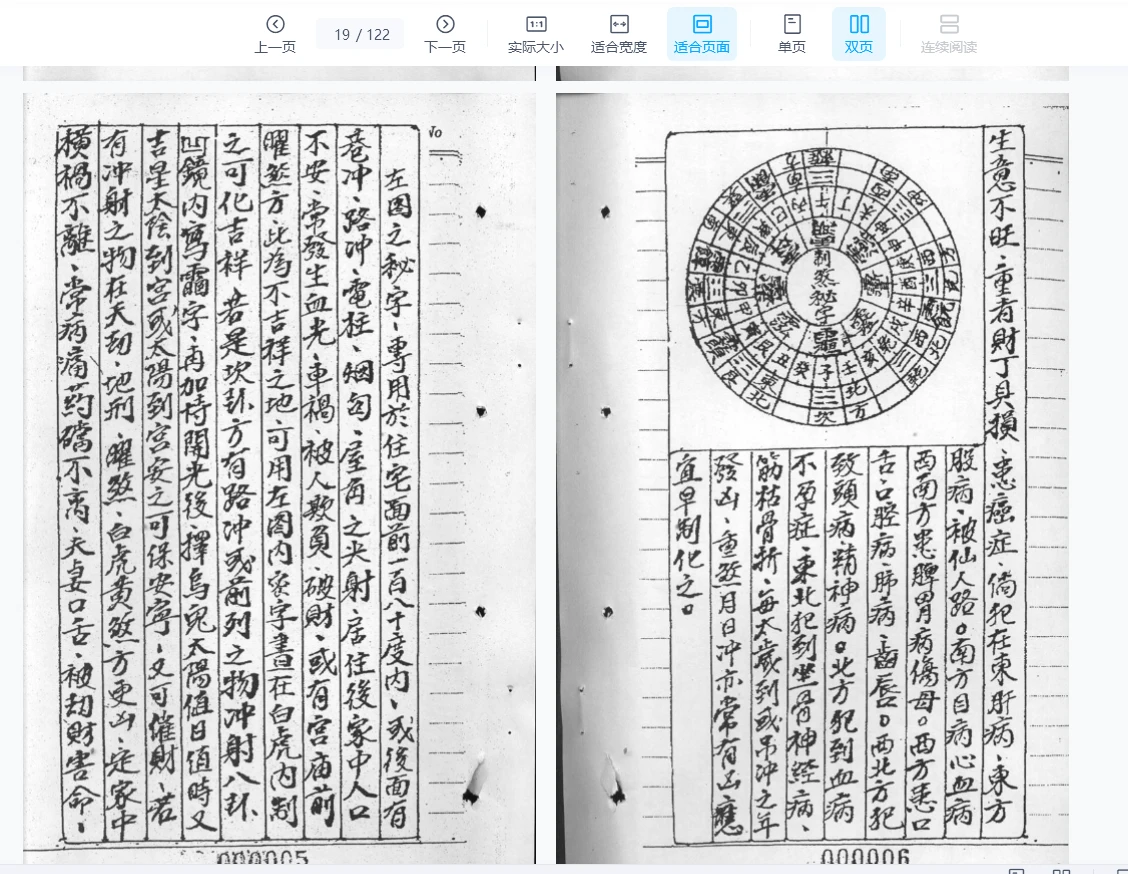 上一页
19 / 122
下一页
实际大小
适合宽度
适合页面
单页
双页
连续阅读
No
左图之秘字、專用於住宅面前一百八十度内、或後面有
巷冲、路冲、電柱、烟囱、屋角之尖射、居住後家中人口
不安、常發生血光、車禍、被人欺負、破財、或有宫庙前
曜煞方此為不吉祥之地可用左图内家字書在白虎内制
之可化吉祥、若是坎卦方有路冲或前列之物冲射八卦
凹鏡内写霝字、再加持開光後、擇烏兔太陽值日值時又
吉星太陰到宫或太陽到宫安之可保安寧、又可催財、若
有冲射之物在天劫、地刑、曜煞、白虎黄煞方更凶、定家中
横禍不離、常病痛药罐不离、夫妻口舌、被劫財害命、
000005
生意不旺、重者財丁具損、患癌症、倘犯在東肝病、東方
股病、被仙人路。南方目病心血病
西南方患脾胃病傷母。西方患口
舌、口腔病、肺病、齒唇。西北方犯
致頭病、精神病。北方犯到血病
不孕症、東北犯到坐骨神经病、
筋枯骨折、每太歲到或吊冲之年
發凶、重煞月日冲亦常有凶應
宜早制化之。
制煞秘字
子
癸
丑
艮
東北
北方
壬
坎
午
丁
丙
000006